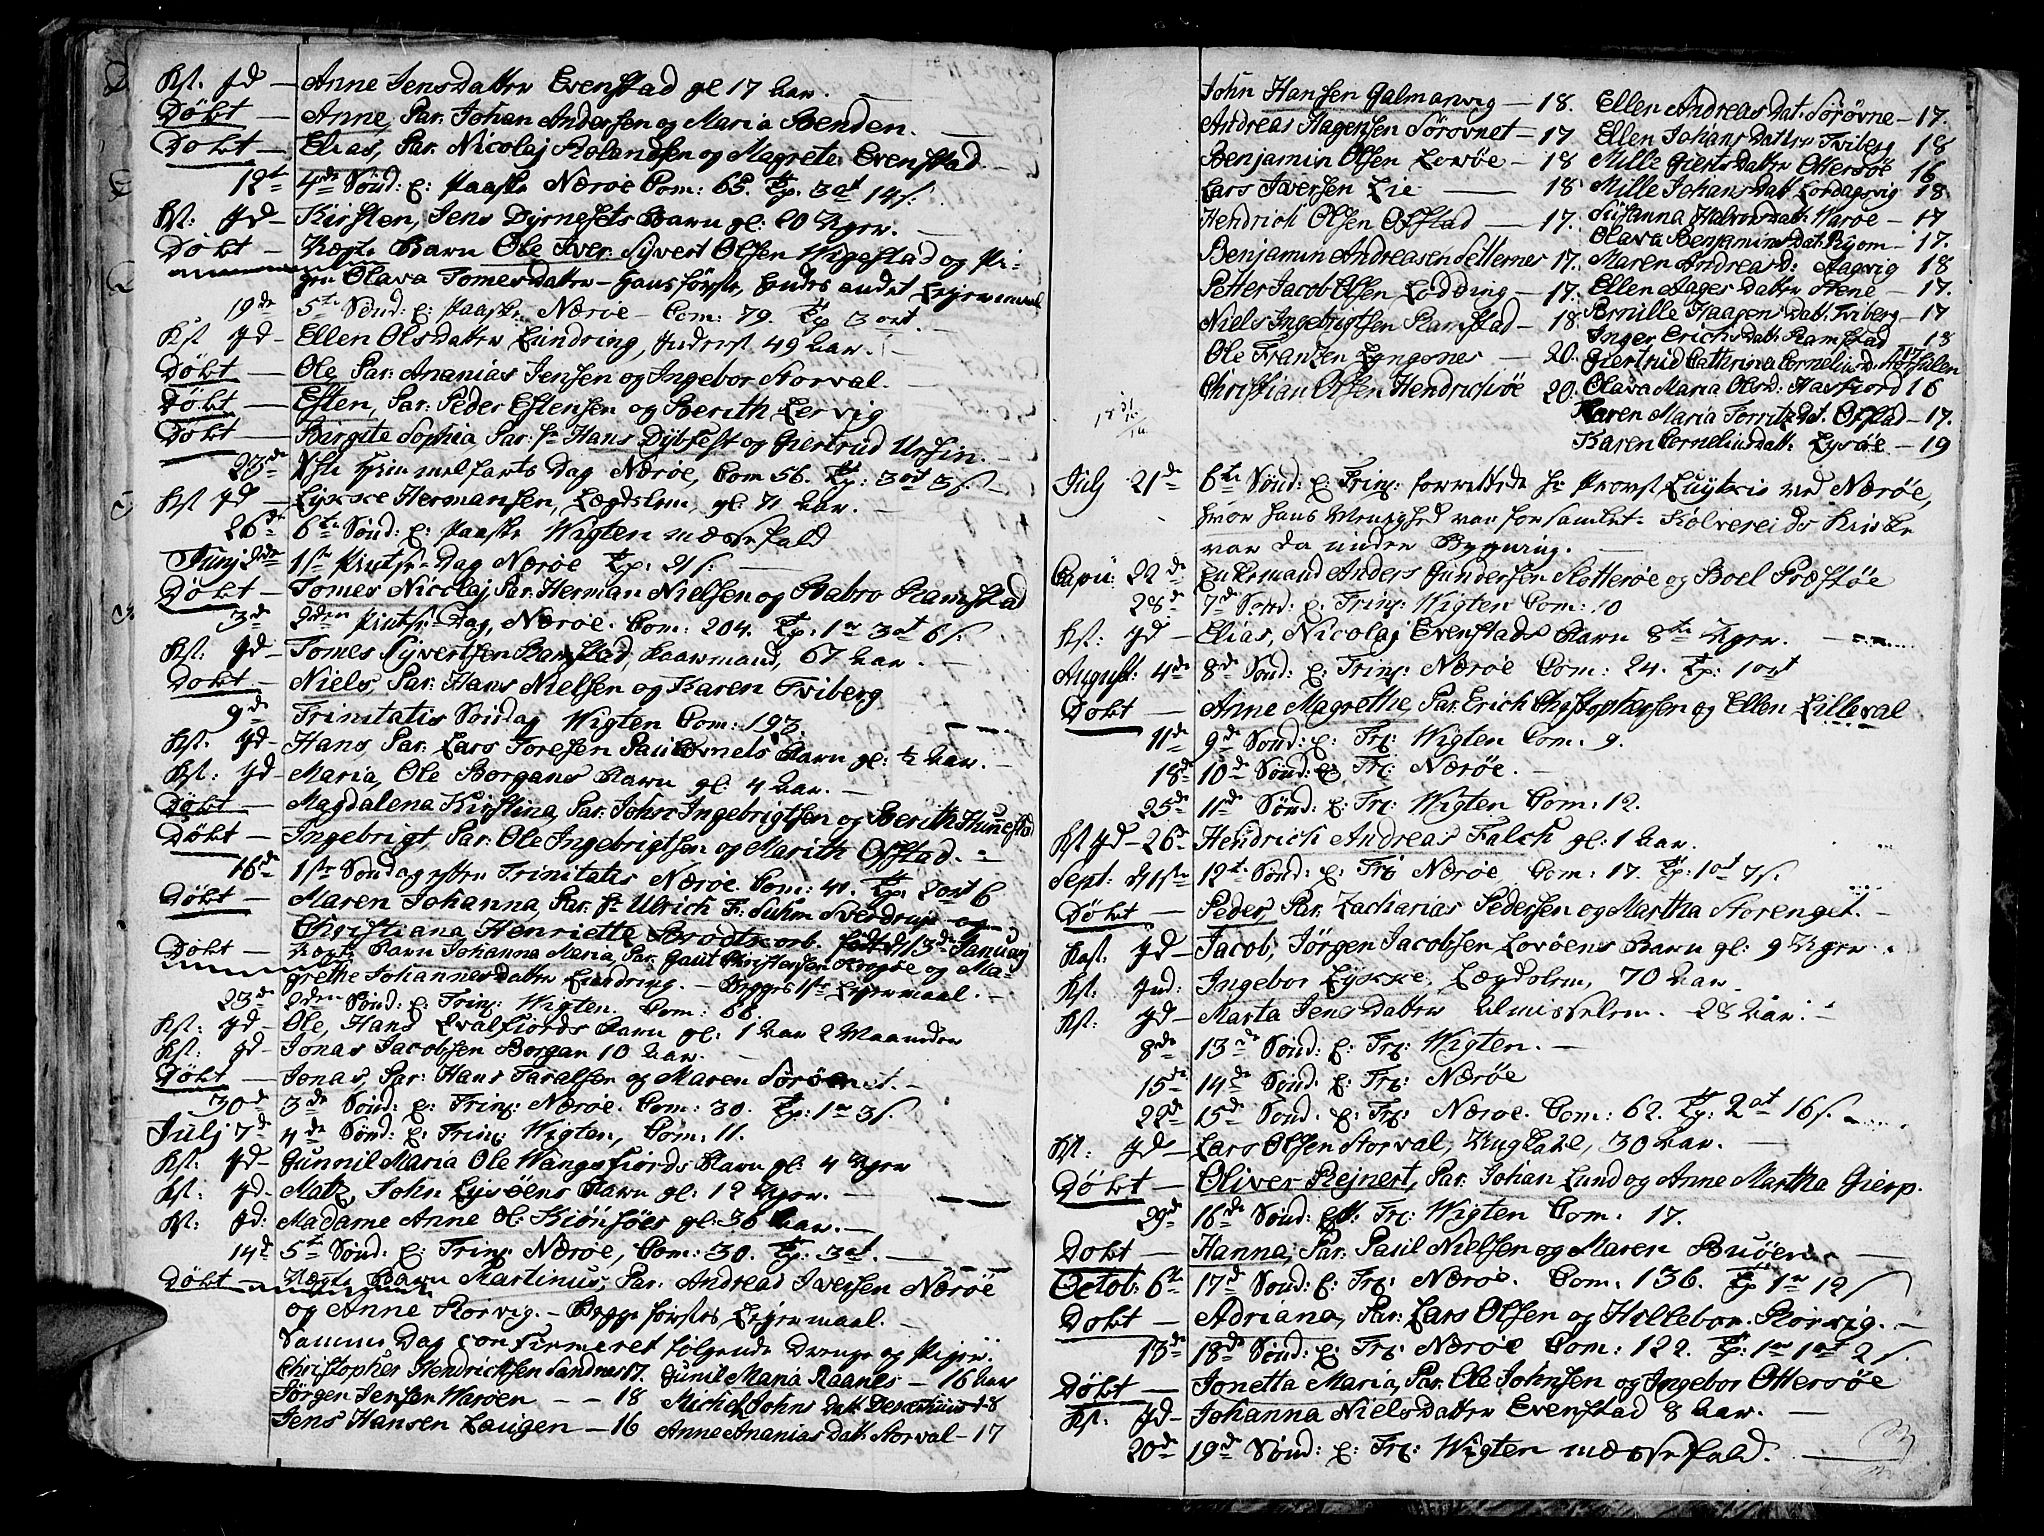 Kst. Jd — Anne Jensdatter Evenstad gl 17 Aar. —
Döbt — Anne, Par. Johan Andersen og Maria Benden. —
Döbt — Elias, Par. Nicolaj Rolandsen og Magrete Evenstad —
12te 4de Sönd: E: Paaske Nærøe Com: 65. Tp. 3 ort 14 s.
Kst: Jd — Kirsten, Jens Dyrnesets Barn gl: 20 Uger. —
Döbt — Uægte Barn Ole Iver. Sÿvert Olsen Wigestad og Pi-
gen Olava Tomesdatter — hans første, hendes andet Leyermaal
19de 5te Sönd: E: Paaske. Nærøe — Com: 79. Tp 3 ort. —
Kst Jd — Ellen Olsdatter Lundring, Inderst 49 Aar. —
Döbt — Ole Par: Ananias Jensen og Ingebor Storval. —
Döbt — Esten, Par: Peder Estensen og Berith Lervig
Döbt — Birgite Sophia Par: Hr Hans Dÿbfest og Giertrud Ursin. —
23de Xsti Himmelfarts Dag Nærøe, Com 56. Tp: 3 ort 3 s. —
Kst Jd — Lykke Hermansen, Lægdslem, gl: 71 Aar. —
26de 6te Sönd: E: Paaske Wigten mæssefald
Junj 2den 1ste Pintse-Dag Nærøe Tp: 21 s: —
Döbt — Tomes Nicolaj Par: Herman Nielsen og Babro Ramstad
3de 2den Pintse-Dag, Nærøe. Com: 204. Tp: 1 rd 3 ort 6 s. —
Kst: Jd — Tomes Sÿvertsen Ramstad, Kaarmand, 67 Aar. —
Döbt — Niels, Par: Hans Nielsen og Karen Tviberg
9de Trinitatis Söndag Wigten Com: 193.
Kst. Jd — Hans, Par. Lars Toresen Barn gl: ½ Aar. —
Kst: Jd — Maria, Ole Borgans Barn gl: 4 Aar. —
Döbt — Magdalena Kirstina, Par: John Ingebrigtsen og Berith Hunestad
Döbt — Ingebrigt, Par: Ole Ingebrigtsen og Marith Ofstad. —
16de 1ste Söndag efter Trinitatis Nærøe. Com: 41. Tp: 2 ort 6
Döbt — Maren Johanna, Par. Hr Ulrich Fr: Suhm Sverdrup og
Christiana Henriette Brodtkorb. född d 13de Januarj
Döbt — Uægte Barn Johanna Maria, Par: Gaut Christensen Korsøe og Ma-
grethe Johannesdatter Lundring. — Begges 1ste Leyermaal. —
23de 2den Sönd: E: Trin: Wigten. Com: 66.
Kst: Jd — Ole, Hans Evalfiords Barn gl: 1 Aar 2 Maaneder
Kst: Jd — Jonas Jacobsen Borgan 10 Aar. —
Döbt — Jonas, Par: Hans Taralsen og Maren Sørøvnet. —
30de 3de Sönd: E: Trin: Nærøe. Com: 30. Tp: 1 rd 3 s.
Julj 7de 4de Sönd: E: Trin: Wigten, Com: 11.
Kst: Jd — Gunnil Maria Ole Wangsfiords Barn gl: 4 Uger
Kst: Jd — Matz, John Lysøens Barn gl: 12 Uger. —
Kst: Jd: Madame Anne Kiönsöes gl: 36 Aar. —
14de 5te Sönd: E: Trin: Nærøe, Com: 30. Tp: 3 ort. —
Döbt — Uægte Barn Martinus, Par: Andreas Iversen Nærøe
og Anne Rorvig. — Begge første Leyermaal. —
Samme Dag confirmeret følgende Drenge og Piger.
Christopher Hendrichsen Sandnes 17. Gunil Maria Raanes — 16 Aar
Jörgen Jensen Warøen — — 18 Michel Johns dat: 18
Jens Hansen Laugen — 16 Anne Ananias dat: Storval — 17
John Hansen Galmarvig — 18. Ellen Andreas Dat: Sørøvne — 17.
Andreas Hagensen Sørovnet — 17 Ellen Johans Datter Tviberg 18
Benjamin Olsen Lovøe — 18 Mille Giertsdatter Ottersøe 16
Lars Iversen Lie — 18 Mille Johans Dat Lordagsvig 18
Hendrich Olsen Ofstad — 17. Susanna Halvorsdat: Warøe — 17
Olava Benjamins Dat: Ryom — 17.
Benjamin Andreasen Setternes 17. Maren Andreas d: Aagvig 18
Petter Jacob Olsen Lodding — 17. Ellen Aages datter Stene — 17.
Niels Ingebrigtsen Ramstad — 18 Pernille Haagens dat: Tviberg — 17
Inger Erichs dat: Ramstad 18
Ole Frantzen Lyngsnes — 20. Giertrud Cathrina Cornelius d: Horsfalen 17
Christian Olsen Hendrichsøe 20. Olava Maria Ols d: Havfiord 16
Karen Maria Torrits dt. Ofstad — 17.
Karen Cornelius dat: Lysøe — 19
Julj 21de 6te Sönd: E: Trin: forrettede Hr Provst Luytkis ved Nærøe,
hvor hans Menighed var forsamlet. Kolvereids Kirke
var da under Bygning. —
Capu: 22de Enkemand Anders Gundersen Flotterøe og Boel Præstøe
28de 7de Sönd: E: Trin: Wigten Com: 10
Kst: Jd — Elias, Nicolaj Evenstads Barn 8te Uger. —
August: 4de 8de Sönd: E: Trin: Nærøe Com: 24. Tp: 1 ort
Döbt — Anne Magrethe Par: Erich Christophersen og Ellen Lilleval
11de 9de Sönd: E: Tr: Wigten Com: 9.
18de 10de Sönd: E: Tr: Nærøe. —
25de 11te Sönd: E: Tr: Wigten Com: 12.
Kst Jd — 26de Hendrich Andreas Falch gl: 1 Aar.
Sept: d 1ste 12te Sönd: E: Tr: Nærøe, Com: 17. Tp: 1 ort 7 s.
Döbt — Peder, Par: Zacharias Pedersen og Martha Storenget. —
Kast. Jd — Jacob, Jörgen Jacobsen Lovøens Barn gl: 9 Uger
Kst. Jord: Ingebor Lykke, Lægdslem, 70 Aar.
Kst: Jd — Marta Jensdatter Almisselem. 28 Aar. —
8de 13de Sönd: E: Tr: Wigten. —
15de 14de Sönd: E: Tr: Nærøe
22de 15de Sönd: E: Tr: Nærøe. Com: 62. Tp: 2 ort 16 s.
Kst: Jd — Lars Olsen Storval, Ungkarl, 30 Aar. —
Döbt — Oliver Rejnert, Par: Johan Lund og Anne Martha Gierp.
29de 16de Sönd: Eft: Tr: Wigten Com: 17.
Döbt — Hanna, Par: Paul Nielsen og Maren Buøen —
Octob: 6te 17de Sönd: E: Tr: Nærøe. Com: 136. Tp 1 rd 12 s
Döbt — Adriana, Par: Lars Olsen og Hillebor Rorvig. —
13de 18de Sönd: E: Tr: Nærøe Com: 122. Tp: 1 rd 1 ort 2 s.
Döbt — Jonetta Maria, Par: Ole Johnsen og Ingebor Ottersøe
Kst: Jd — Johanna Nielsdatter Evenstad 8 Aar. —
20de 19de Sönd: E: Tr: Wigten mæssefald. —